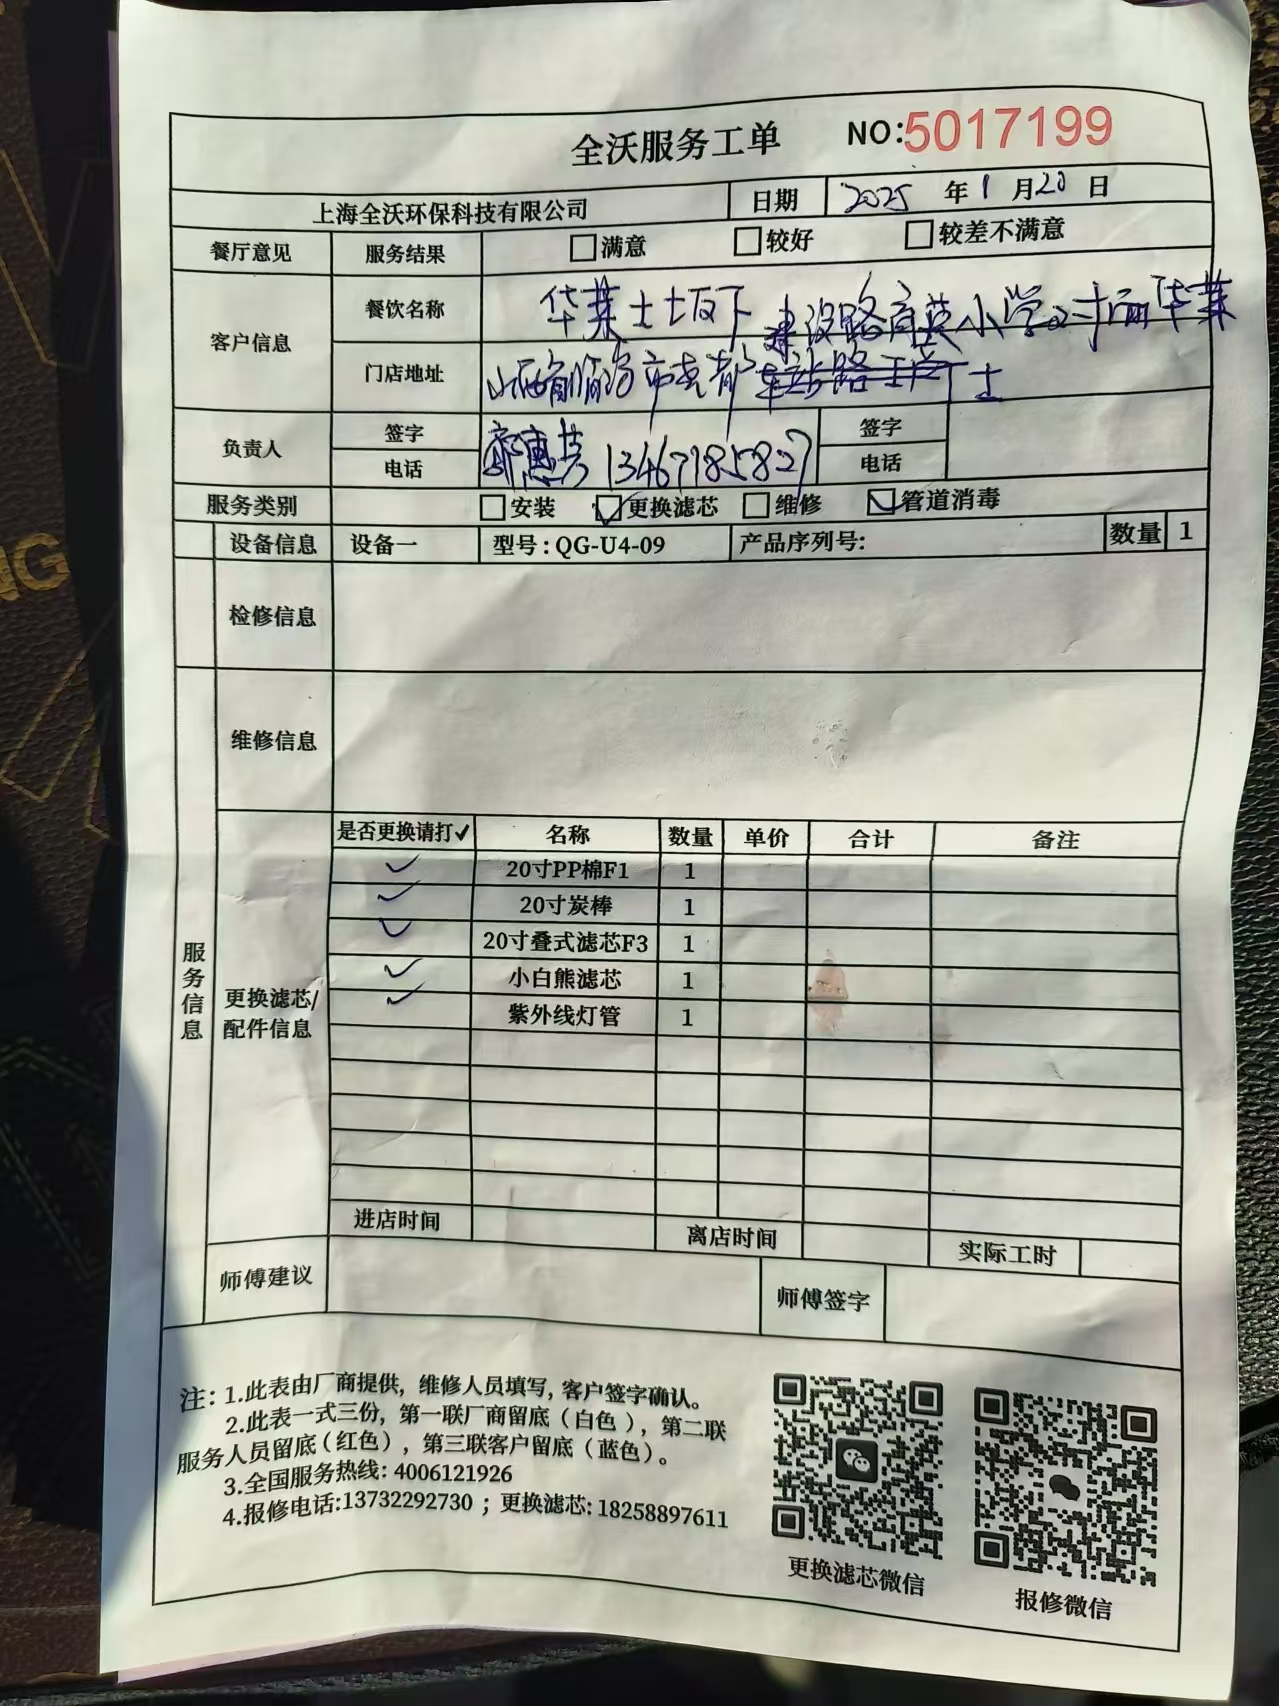 全沃服务工单 NO:5017199
上海全沃环保科技有限公司 日期 2025年1月20日
餐厅意见 服务结果 满意 较好 较差不满意
客户信息 餐饮名称 华莱士坂下
建设路育英小学对面华莱士
门店地址 山西省临汾市尧都
负责人 签字 签字
电话 13467185827 电话
服务类别 安装 更换滤芯 维修 管道消毒
设备信息 设备一 型号:QG-U4-09 产品序列号: 数量 1
检修信息
维修信息
服务信息
更换滤芯/配件信息
是否更换请打✓ 名称 数量 单价 合计 备注
✓ 20寸PP棉F1 1
✓ 20寸炭棒 1
✓ 20寸叠式滤芯F3 1
✓ 小白熊滤芯 1
✓ 紫外线灯管 1
进店时间 离店时间 实际工时
师傅建议 师傅签字
注:1.此表由厂商提供,维修人员填写,客户签字确认。
2.此表一式三份,第一联厂商留底(白色),第二联
服务人员留底(红色),第三联客户留底(蓝色)。
3.全国服务热线:4006121926
4.报修电话:13732292730;更换滤芯:18258897611
更换滤芯微信
报修微信